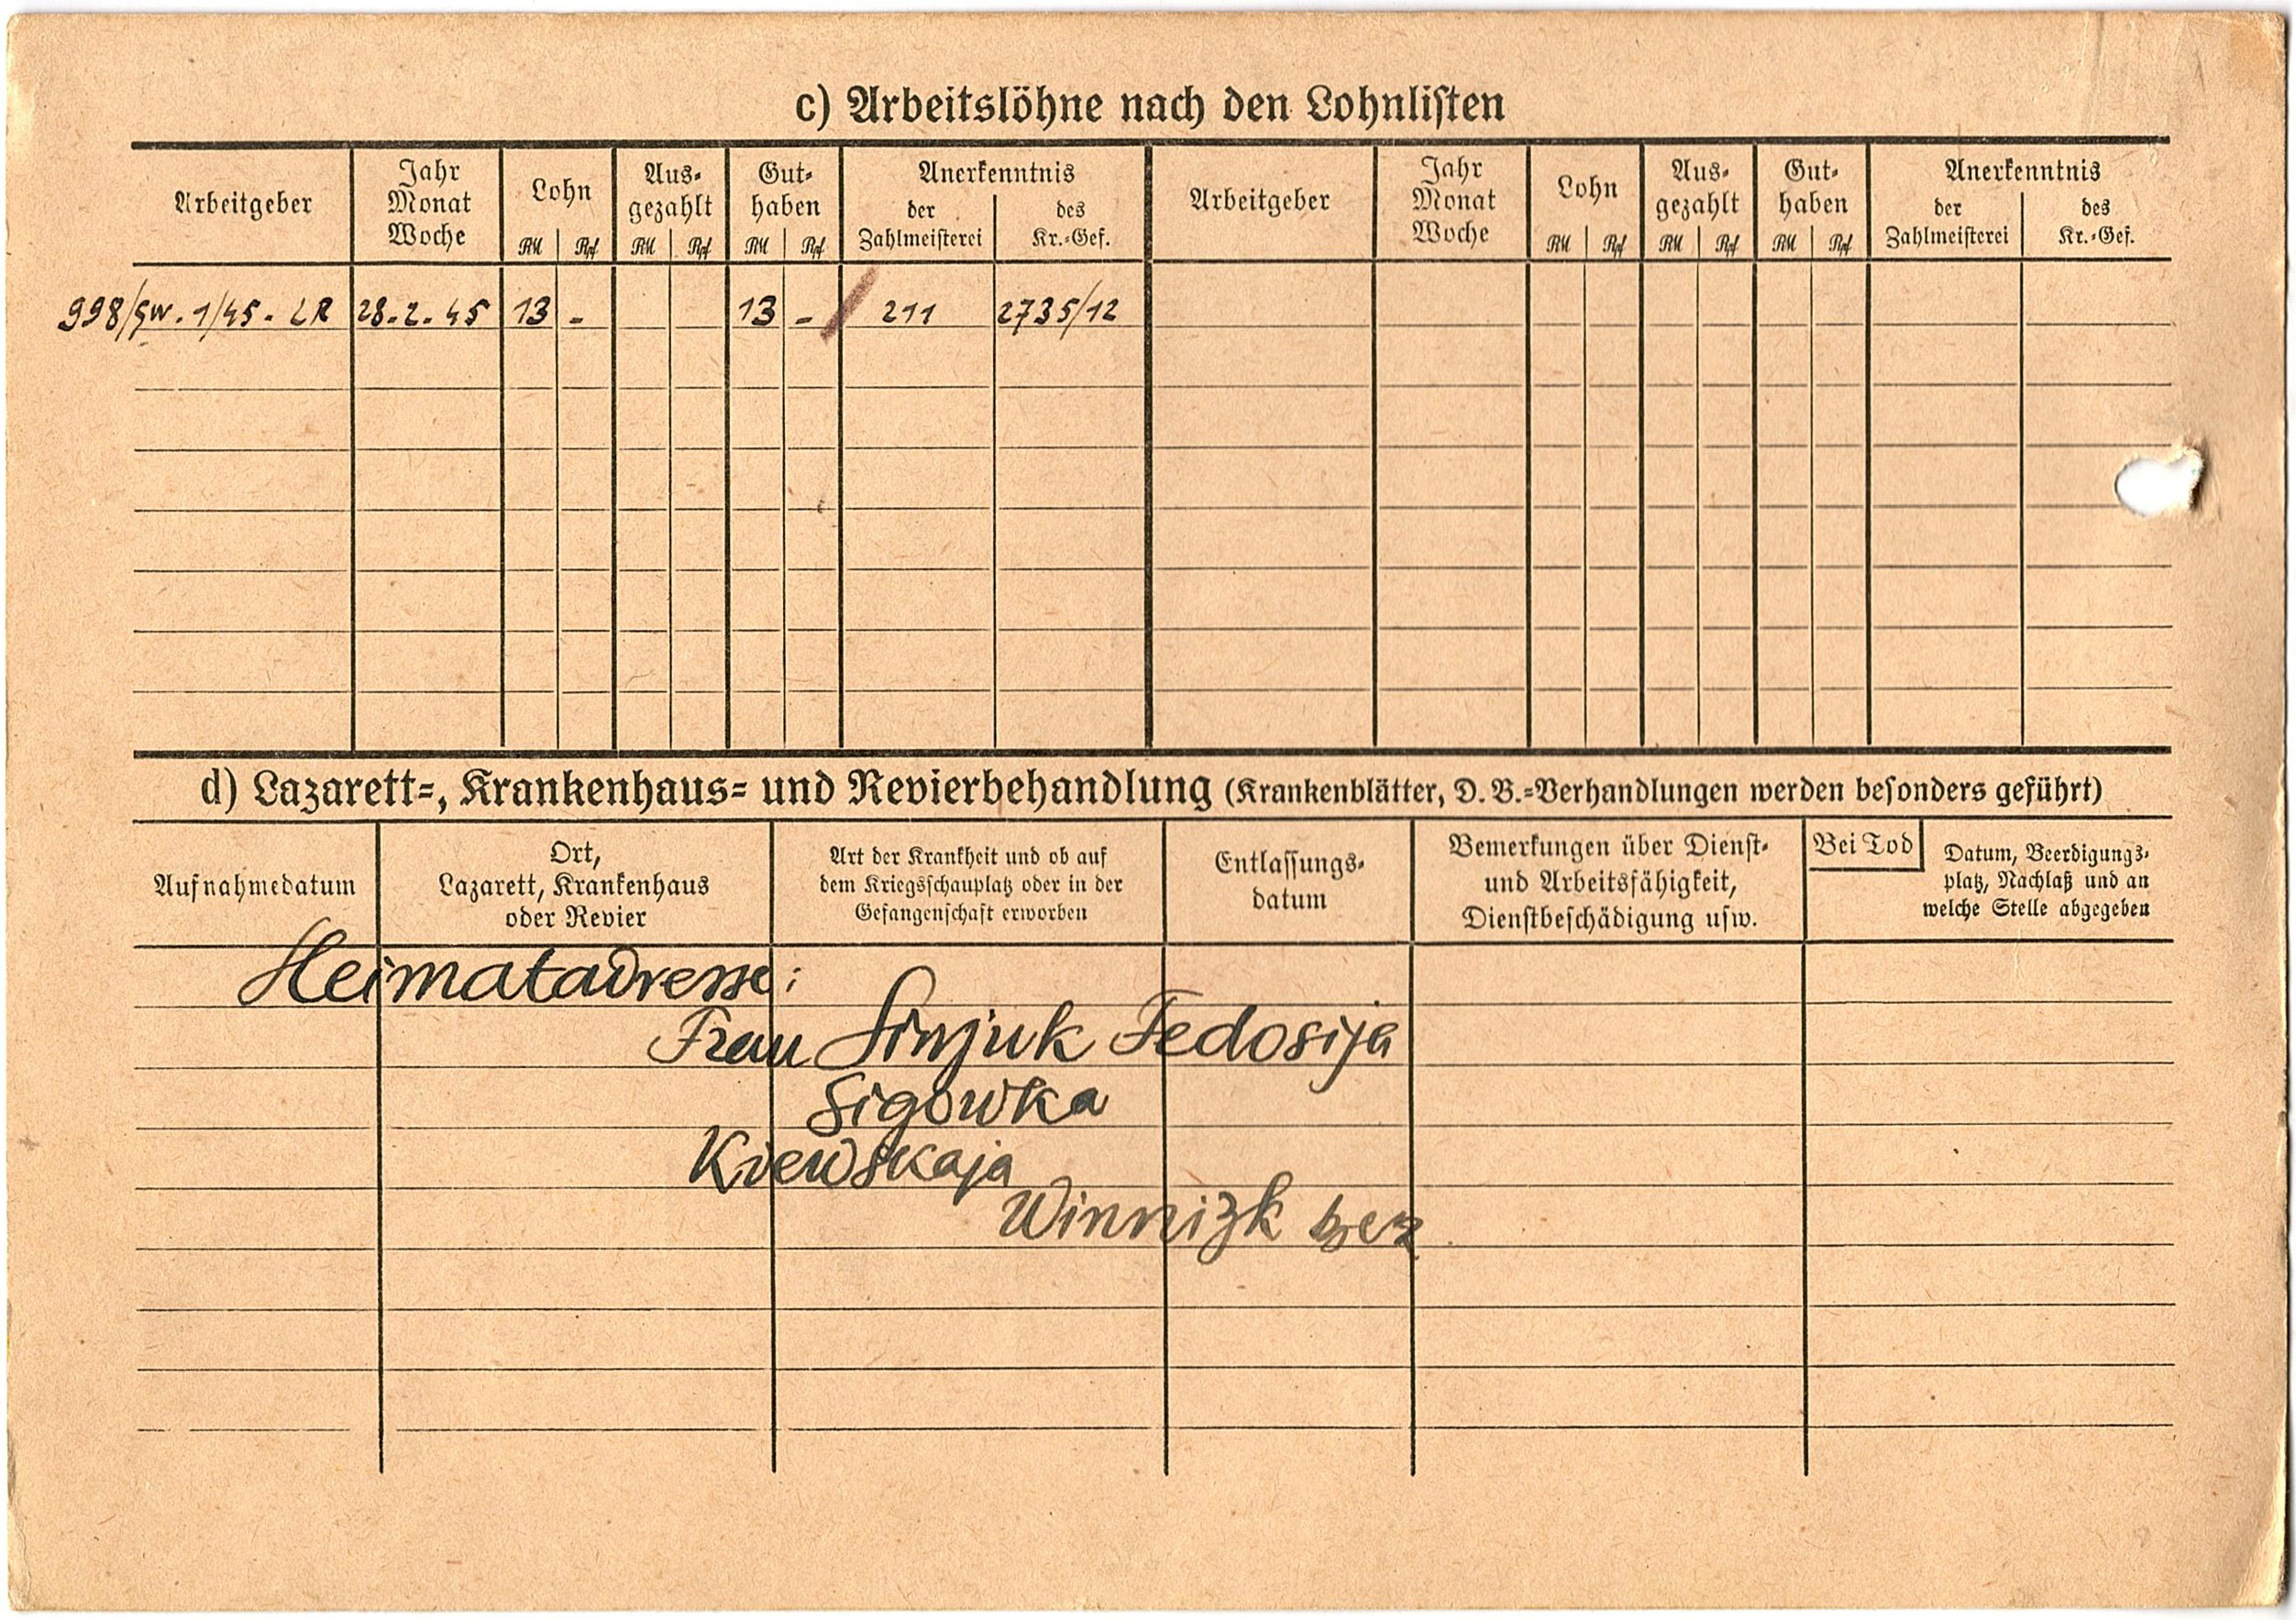 c) Arbeitslöhne nach den Lohnlisten
Arbeitgeber Jahr Monat Woche Lohn RM Rpf Aus-gezahlt RM Rpf Gut-haben RM Rpf Anerkenntnis der Zahlmeisterei des Kr.-Gef. Arbeitgeber Jahr Monat Woche Lohn RM Rpf Aus-gezahlt RM Rpf Gut-haben RM Rpf Anerkenntnis der Zahlmeisterei des Kr.-Gef.
998/gw. 1/45 - LR 28.2.45 13 - 13 - 211 2735/12
d) Lazarett-, Krankenhaus- und Revierbehandlung (Krankenblätter, D. B.-Verhandlungen werden besonders geführt)
Aufnahmedatum
Ort,
Lazarett, Krankenhaus
oder Revier
Art der Krankheit und ob auf
dem Kriegsschauplatz oder in der
Gefangenschaft erworben
Entlassungs-
datum
Bemerkungen über Dienst-
und Arbeitsfähigkeit,
Dienstbeschädigung usw.
Bei Tod
Datum, Beerdigungs-
platz, Nachlaß und an
welche Stelle abgegeben
Heimatadresse:
Frau Sinjuk Fedosija
Sigowka
Kiewskaja
Winnizk bez